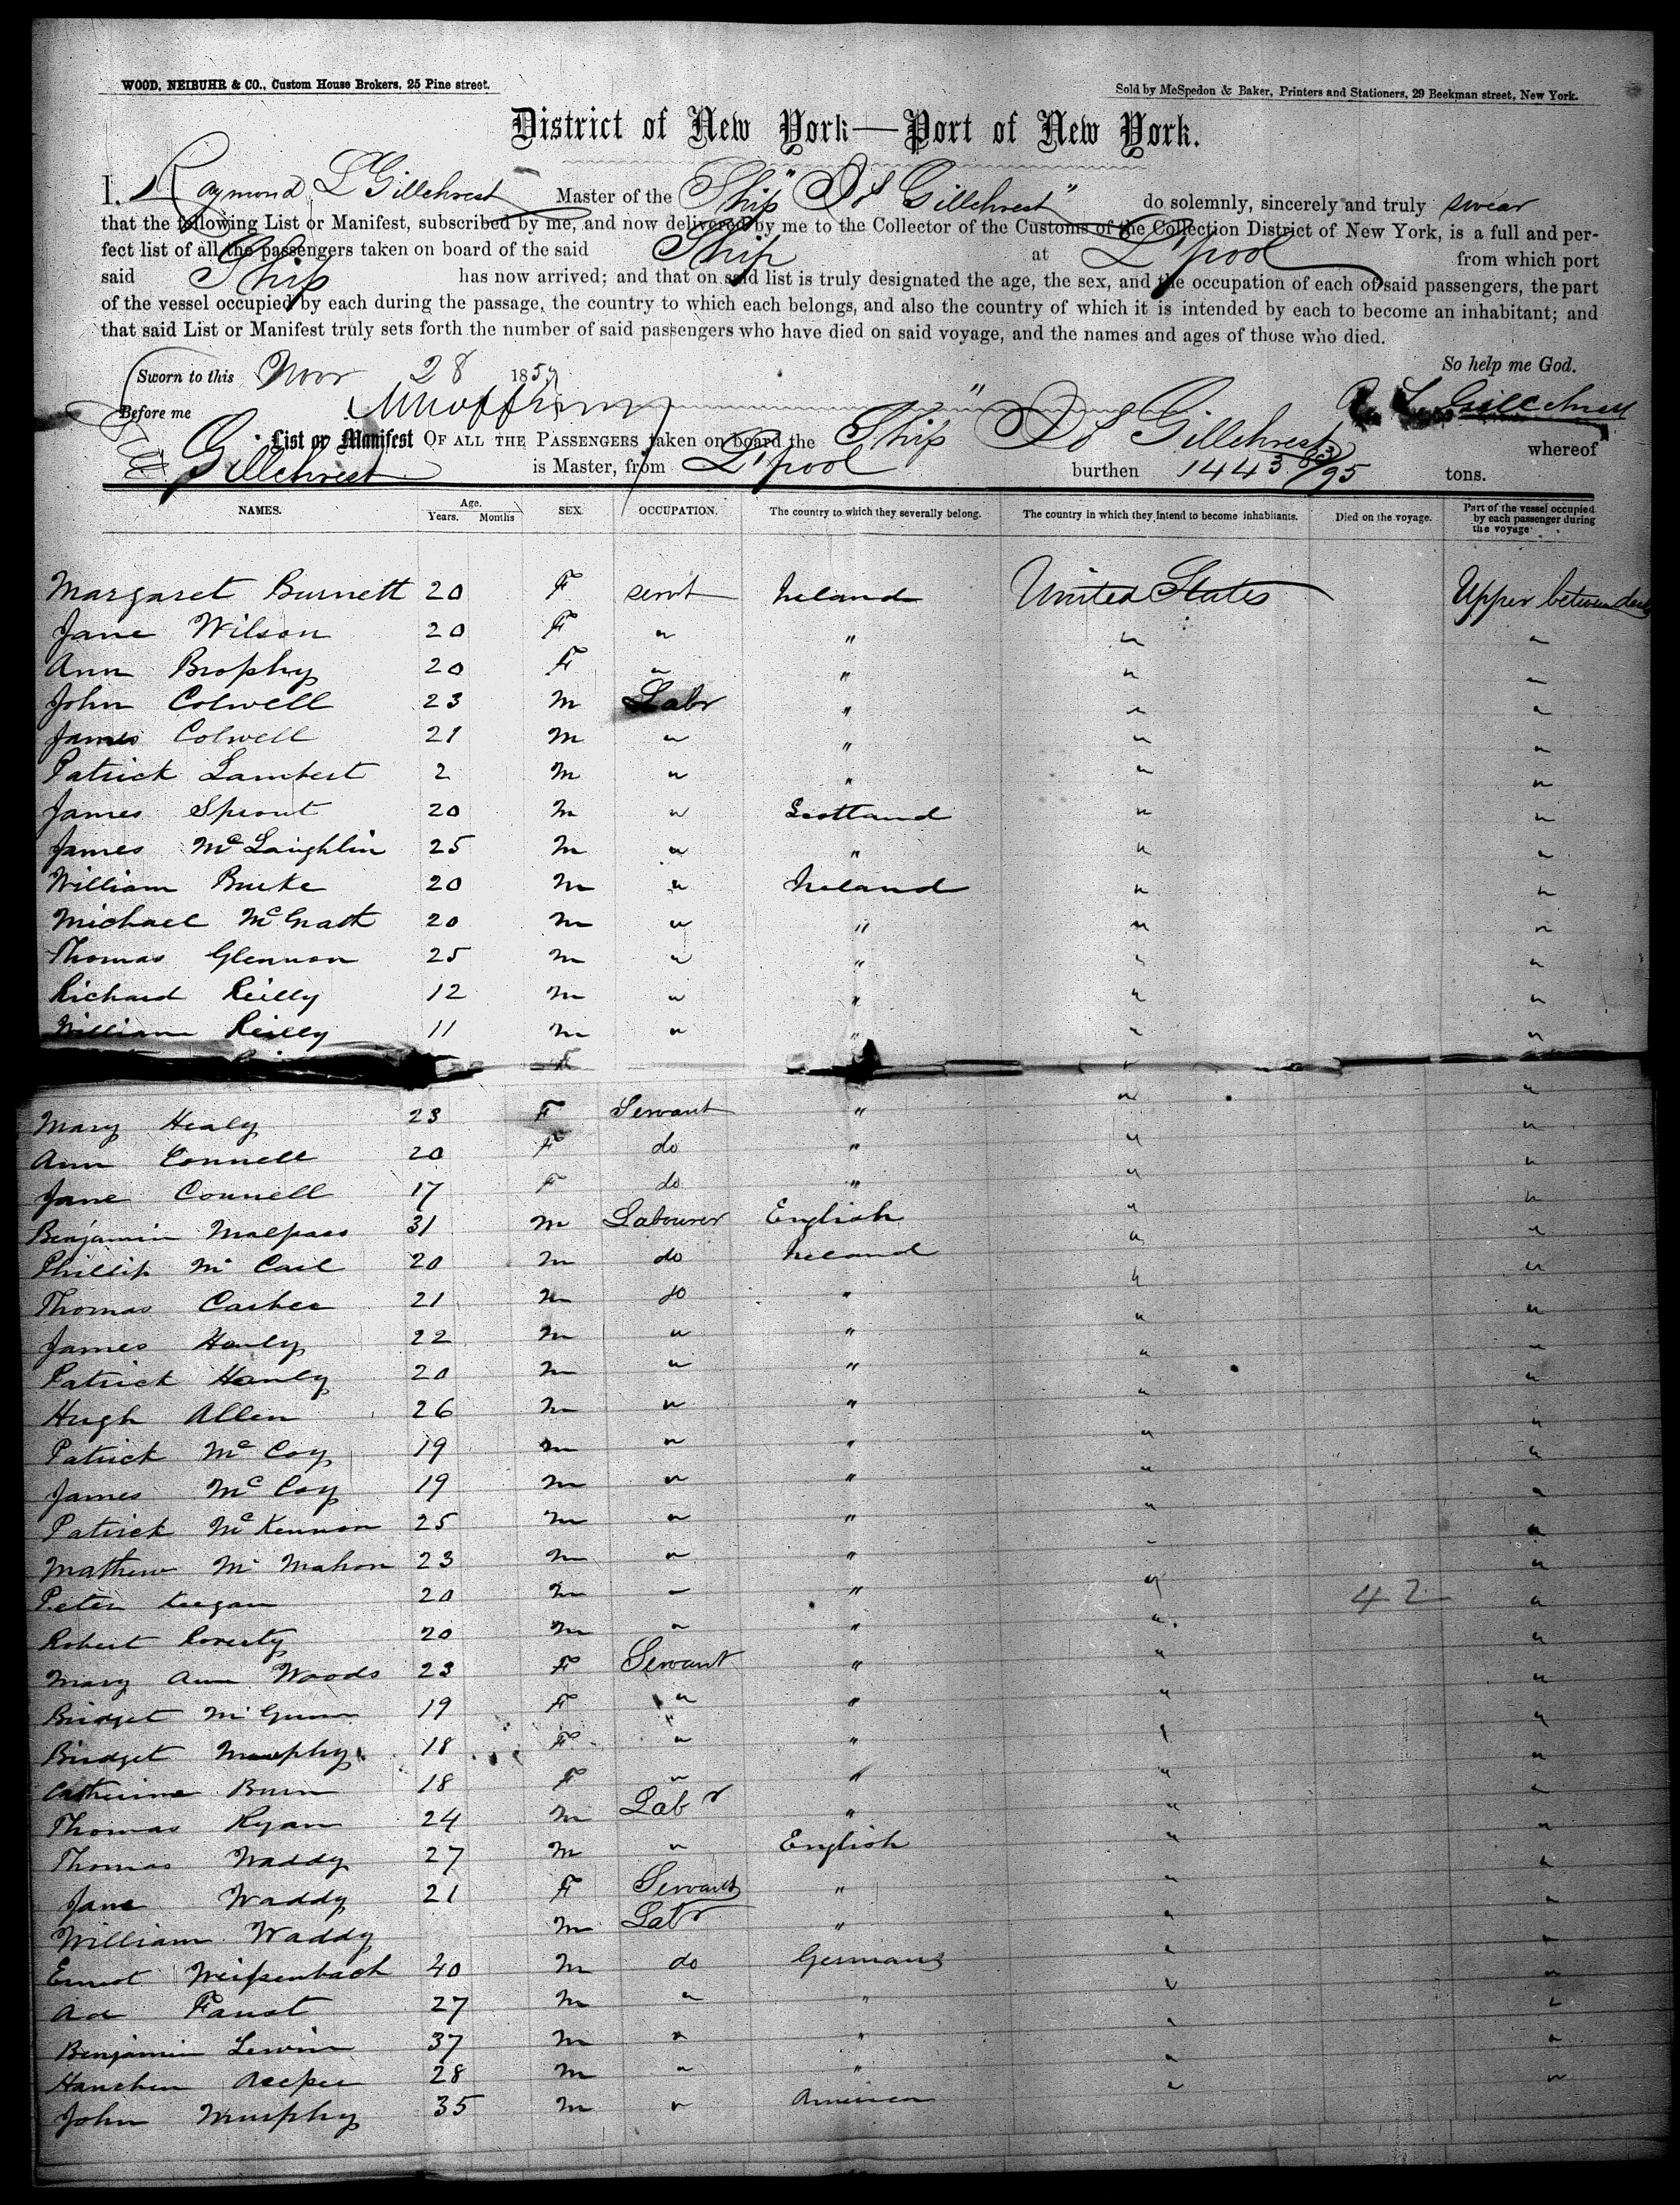 WOOD, NEIBUHR & CO., Custom House Brokers, 25 Pine street.
Sold by McSpedon & Baker, Printers and Stationers, 29 Beekman street, New York.
District of New York—Port of New York.
I, Raymond L Gillchrest Master of the Ship " Gillchrest" do solemnly, sincerely and truly swear
that the following List or Manifest, subscribed by me, and now delivered by me to the Collector of the Customs of the Collection District of New York, is a full and per-
fect list of all the passengers taken on board of the said Ship at L'pool from which port
said Ship has now arrived; and that on said list is truly designated the age, the sex, and the occupation of each of said passengers, the part
of the vessel occupied by each during the passage, the country to which each belongs, and also the country of which it is intended by each to become an inhabitant; and
that said List or Manifest truly sets forth the number of said passengers who have died on said voyage, and the names and ages of those who died.
So help me God.
Sworn to this Nov 28 1859
Before me R L Gillchrest
List or Manifest OF ALL THE PASSENGERS taken on board the Ship Gillchrest whereof
Gillchrest is Master, from L'pool burthen 1443 83/95 tons.
NAMES. Age. Years. Months SEX. OCCUPATION. The country to which they severally belong. The country in which they intend to become inhabitants. Died on the voyage. Part of the vessel occupied by each passenger during the voyage
Margaret Burnett 20 F servt Ireland United States Upper between decks
Jane Wilson 20 F " " " "
Ann Brophy 20 F " " " "
John Colwell 23 M Labr " " "
James Colwell 21 M " " " "
Patrick Lambert 2 M " " " "
James Sprout 20 M " Scotland " "
James McLaughlin 25 M " " " "
William Burke 20 M " Ireland " "
Michael McGrath 20 M " " " "
Thomas Glennon 25 M " " " "
Richard Reilly 12 M " " " "
William Reilly 11 M " " " "
F "
Mary Healy 23 F Servant " " "
Ann Connell 20 F do " " "
Jane Connell 17 F do " " "
Benjamin Malpass 31 M Labourer English " "
Phillip McCail 20 M do Ireland " "
Thomas 21 M do " " "
James Hanly 22 M " " " "
Patrick Hanly 20 M " " " "
Hugh Allen 26 M " " " "
Patrick McCoy 19 M " " " "
James McCoy 19 M " " " "
Patrick McKennon 25 M " " " "
Mathew McMahon 23 M " " " "
Peter Keegan 20 M " " " 42 "
Robert 20 M " " " "
Mary Ann Woods 23 F Servant " " "
Bridget McGunn 19 F " " " "
Bridget Murphy 18 F " " " "
Catherine Burn 18 F " " " "
Thomas Ryan 24 M Labr " " "
Thomas Waddy 27 M " English " "
Jane Waddy 21 F Servant " " "
William Waddy M Labr " " "
Ernest Weissenbach 40 M do Germany " "
Ad Faust 27 M " " " "
Benjamin Lewin 37 M " " " "
28 M " " " "
John Murphy 35 M " America " "